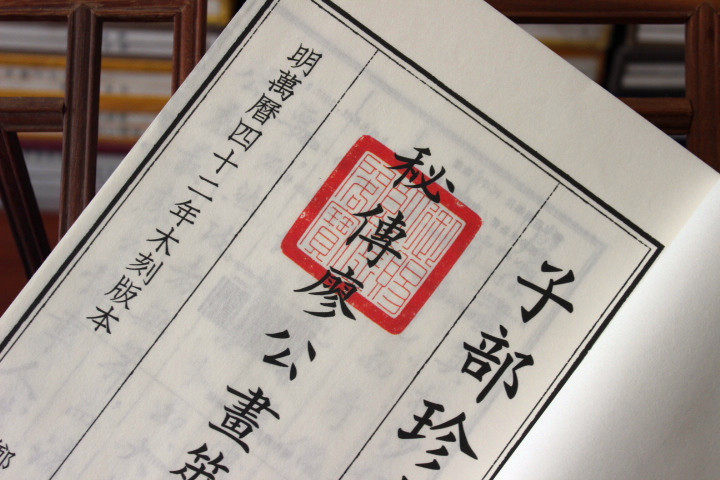 子部珍
秘傳廖公畫
明萬曆四十二年木刻版本